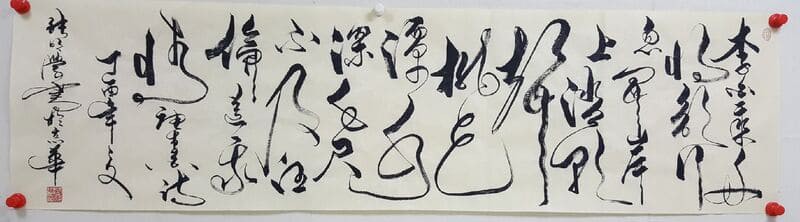 李白乘舟
将欲行
忽闻岸
上踏歌
声
桃花
潭水
深千尺
不及汪
倫送我
情
丁酉年